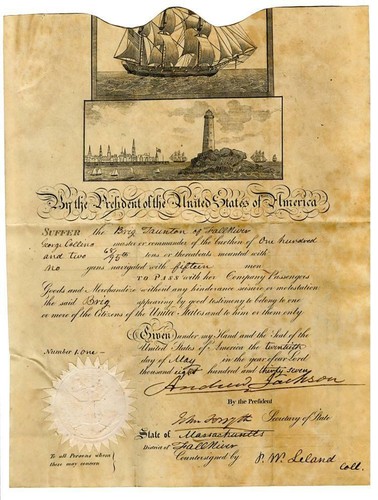 By the President of the United States of America
SUFFER the Brig Taunton of Fall River
George Collins master or commander of the burthen of One hundred
and two 68/95th tons or thereabouts mounted with
no guns navigated with fifteen men
TO PASS with her Company Passengers
Goods and Merchandize without any hinderance seisure or molestation
the said Brig appearing by good testimony to belong to one
or more of the Citizens of the United States and to him or them only
Given under my Hand and the Seal of the
United States of America the twentieth
day of May in the year of our Lord
thousand eight hundred and thirty seven
Number One
Andrew Jackson
By the President
John Forsyth Secretary of State
State of Massachusetts
District of Fall River
Countersigned by P. W. Leland Coll.
To all Persons whom
these may concern